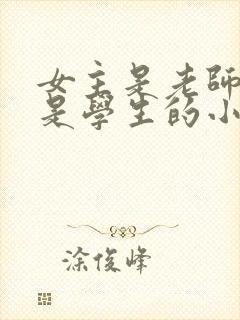 女主是老師
是學生的小
涂俊峰